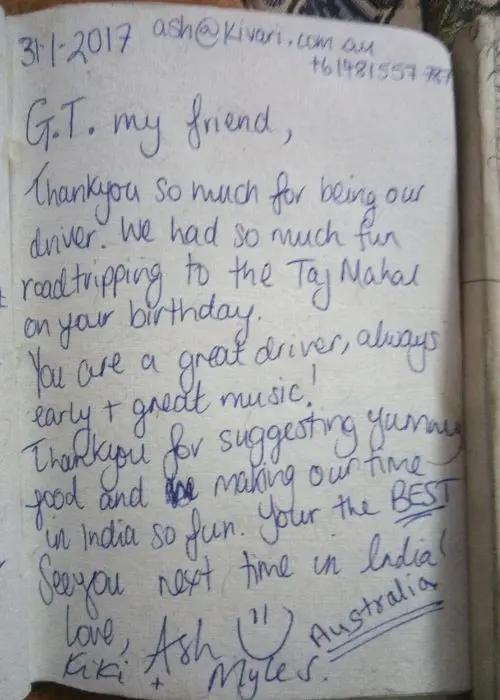 31-1-2017 ash@kivari.com.au
+61481557 787
G.T. my friend,
Thankyou so much for being our
driver. We had so much fun
roadtripping to the Taj Mahal
on your birthday.
You are a great driver, always
early + great music!
Thankyou for suggesting yummy
food and making our time
in India so fun. Your the BEST
See you next time in India!
Love, Ash Australia
Kiki + Myles.